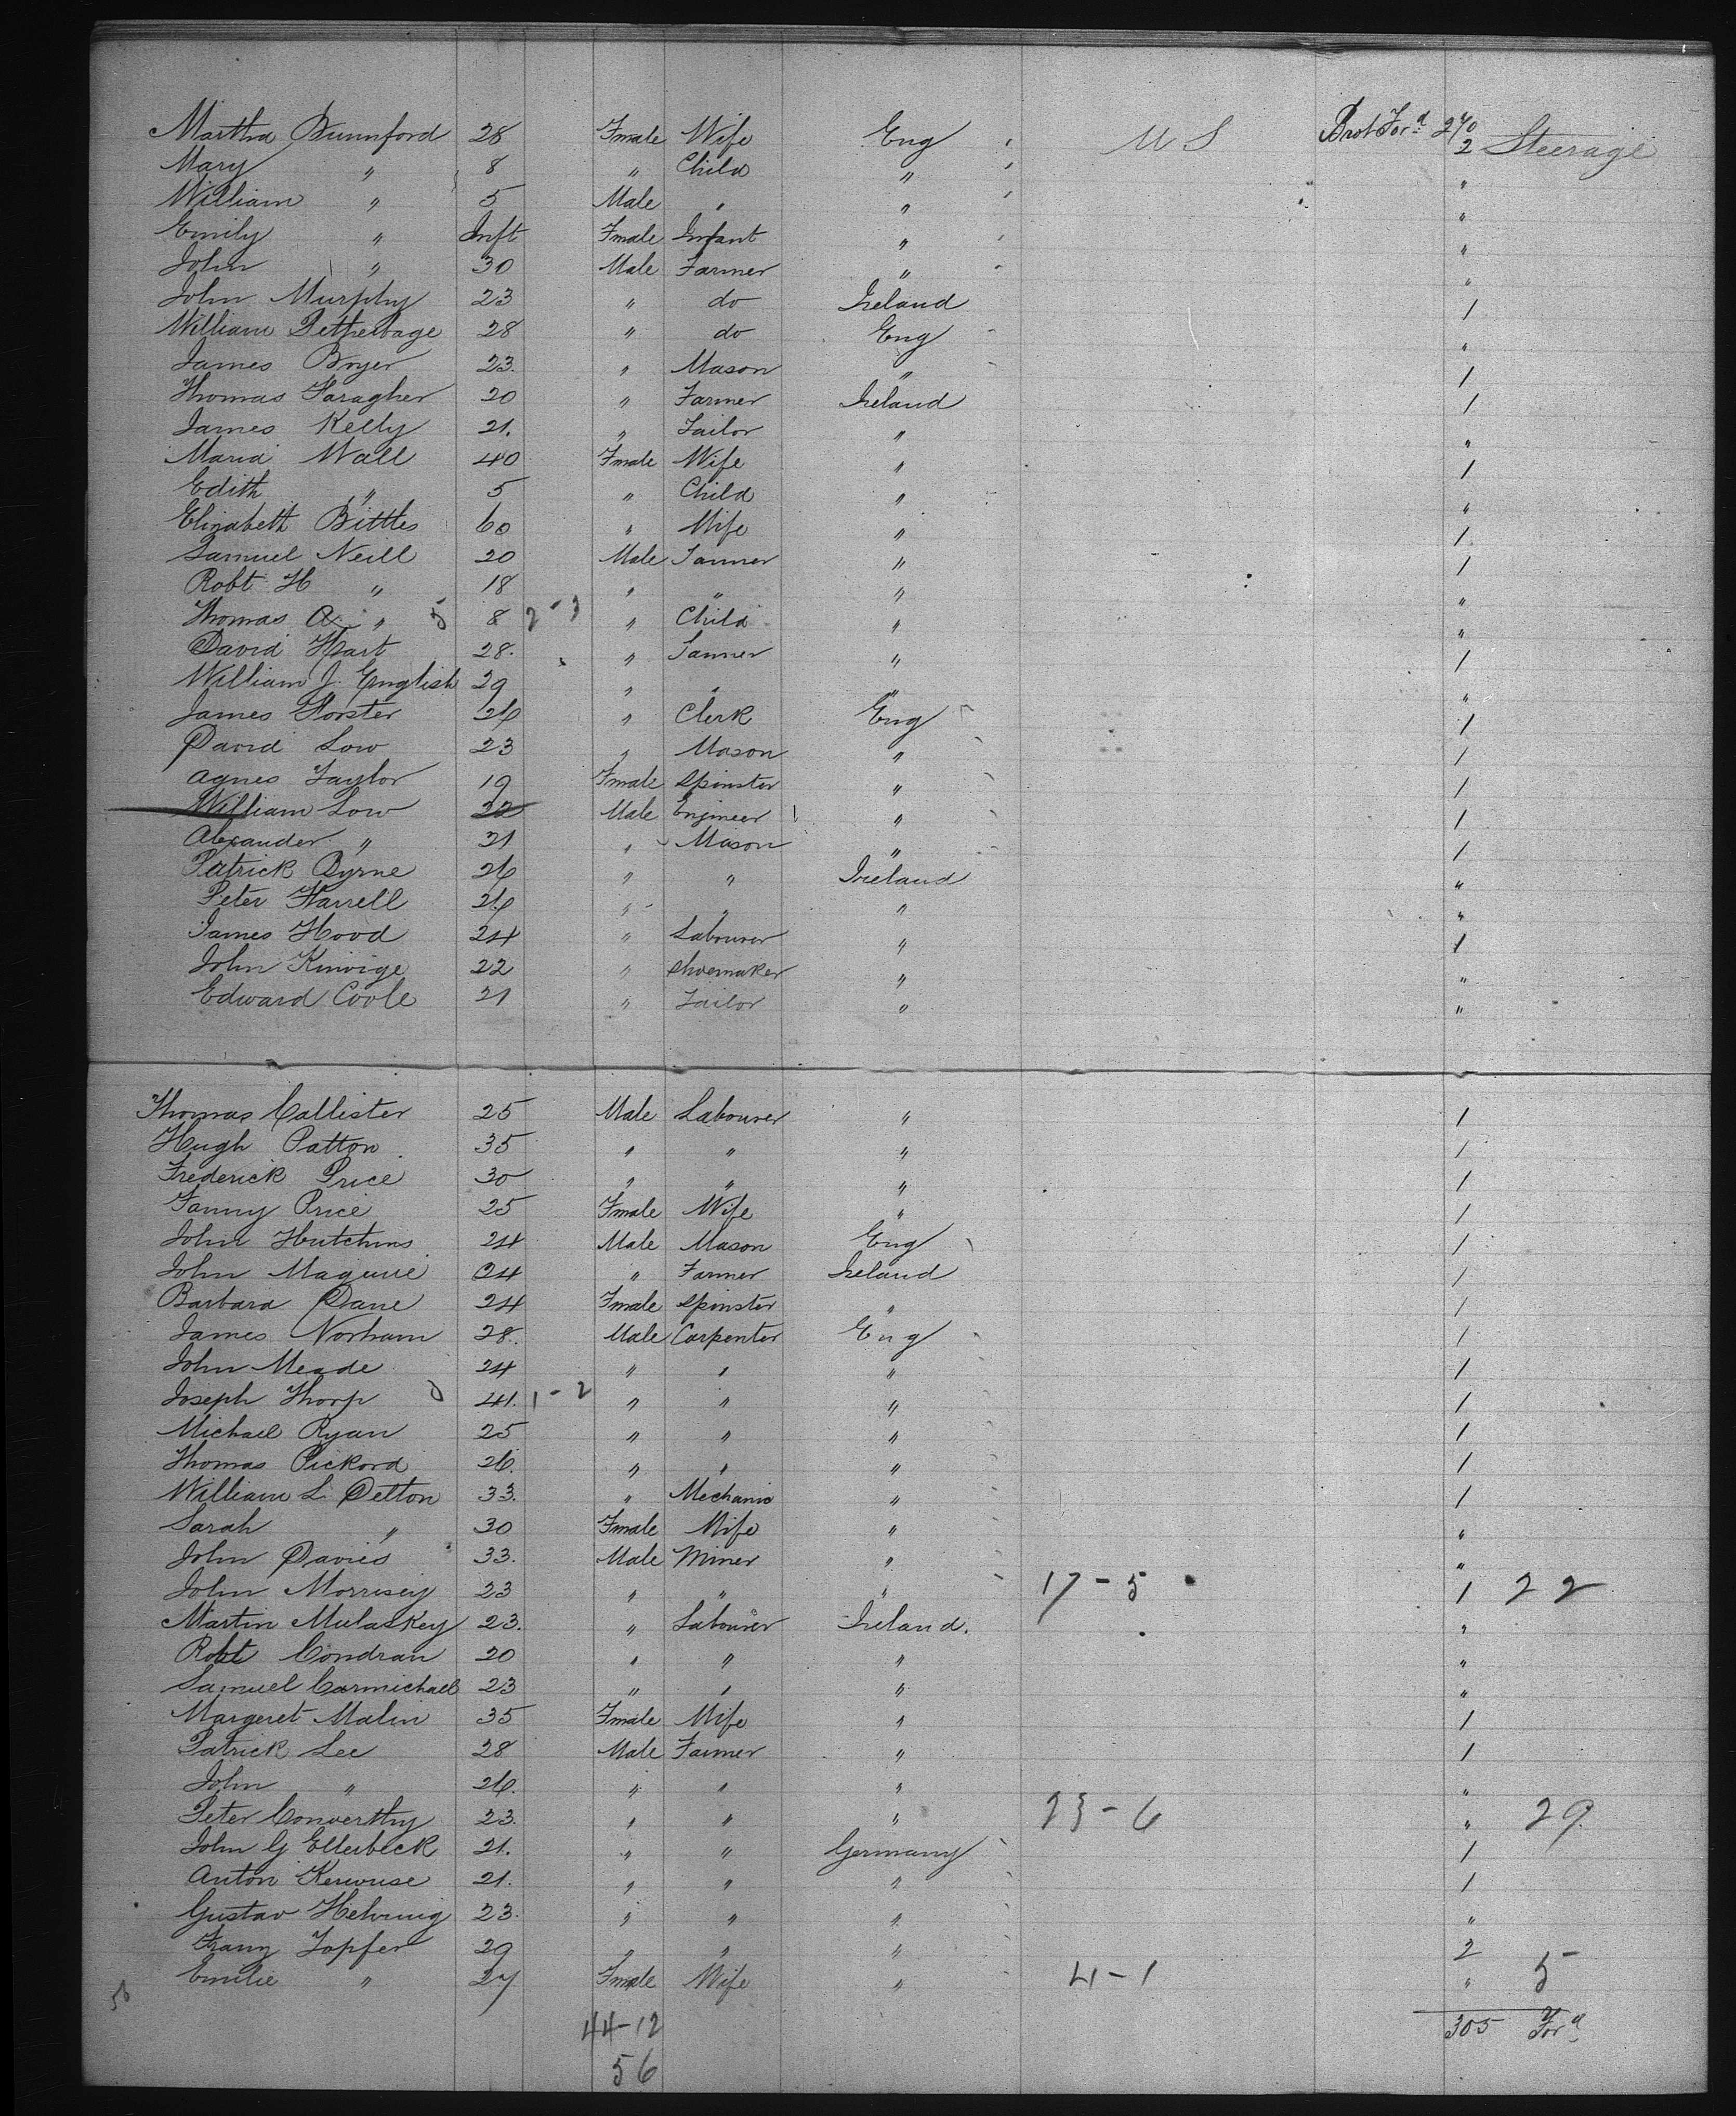 Brot Ford 270
Martha Bunnford 28 Fmale Wife Eng M S 2 Steerage
Mary " 8 " Child " "
William " 5 Male " " "
Emily " Inft Fmale Infant " "
John " 30 Male Farmer " "
John Murphy 23 " do Ireland 1
William Petherbage 28 " do Eng "
James Bryer 23. " Mason " 1
Thomas Faragher 20 " Farmer Ireland 1
James Kelly 21. " Tailor " "
Maria Wall 40 Fmale Wife " 1
Edith " 5 " Child " "
Elizabeth Bittles 60 " Wife " 1
Samuel Neill 20 Male Farmer " 1
Robt H " 18 " " " "
Thomas A " 5 8 2-3 " Child " "
David Hart 28. " Farmer " 1
William J. English 29 " " " "
James Forster 26 " Clerk Eng 1
David Low 23 " Mason " 1
Agnes Taylor 19 Fmale Spinster " 1
William Low 22 Male Engineer " 1
Alexander " 21 " Mason " 1
Patrick Byrne 26 " " Ireland "
Peter Farrell 26 " " " "
James Hood 24 " Labourer " 1
John Kinvige 22 " Shoemaker " "
Edward Coole 21 " Tailor " "
Thomas Callister 25 Male Labourer " 1
Hugh Patton 35 " " " 1
Frederick Price 30 " " " 1
Fanny Price 25 Fmale Wife " 1
John Hutchins 24 Male Mason Eng 1
John Maguire 24 " Farmer Ireland 1
Barbara Dane 24 Fmale Spinster " 1
James Norham 28. Male Carpenter Eng 1
John Meade 24 " " " 1
Joseph Thorp 41. 1-2 " " " 1
Michael Ryan 25 " " " 1
Thomas Pickord 26. " " " 1
William L Detton 33. " Mechanic " 1
Sarah " 30 Fmale Wife " "
John Davies 33. Male Miner " "
John Morrisey 23 " " " 17-5 1 22
Martin Mulaskey 23. " Labourer Ireland. "
Robt Condran 20 " " " "
Samuel Carmichael 23 " " " "
Margeret Malin 35 Fmale Wife " 1
Patrick Lee 28 Male Farmer " 1
John " 26. " " " "
Peter Converthy 23. " " " 23-6 " 29
John G Ellerbeck 21. " " Germany 1
Anton 21. " " " 1
Gustav Helwig 23. " " " "
Franz Topfer 29 " " " 2
Emilie " 27 Fmale Wife " 4-1 " 5
56 44-12 305 Ford
56